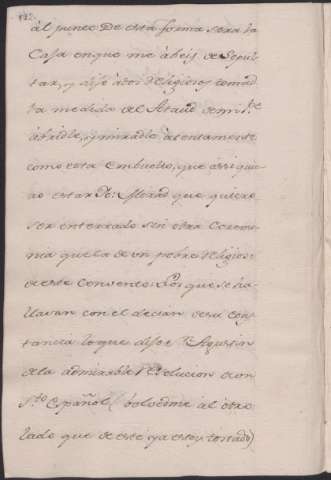 al punto De esta forma sera la
Casa enque me abeis de Sepul-
tar, y dijo a dos Religiosos tomad
la medida del Ataud
abridle, y miradle atentamente
como esta embuelto, que assi quie
ro estar Yo: Mirad que quiero
ser enterrado sin otra Ceremo-
nia que la de un pobre Religioso
de este Convento. Los que se ha-
llavan con el decian de su cons-
tancia lo que dijo Sn. Agustin
de la admirable Resolucion de un
Sto. Español (bolvedme al otro
lado que de este ya estoy tostado)